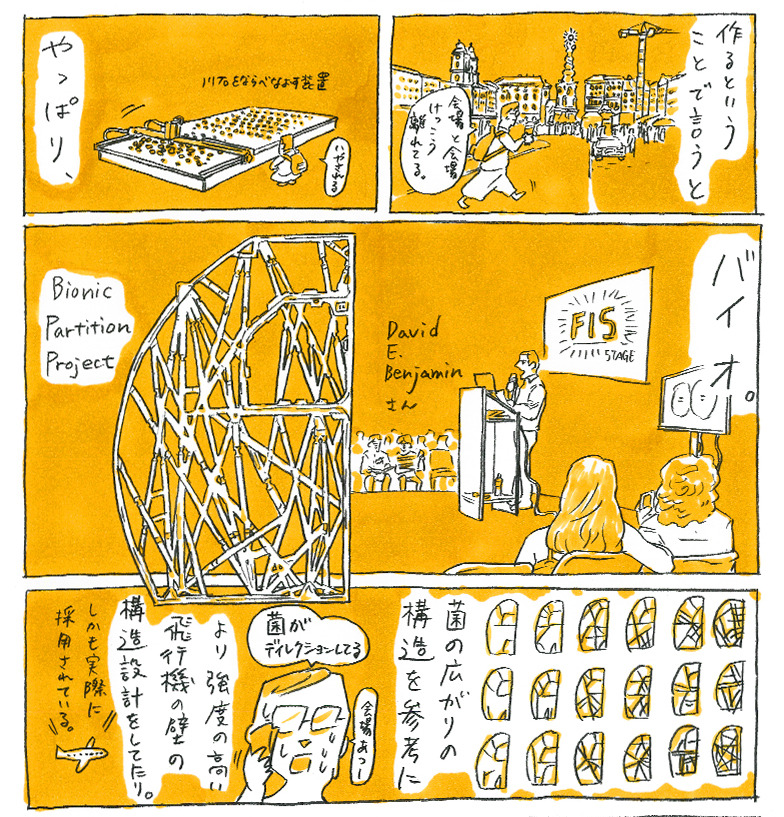 作るという
ことで言うと
会場と会場
けっこう
離れてる。
をならべなおす装置
やっぱり、
バイオ。
FIS
STAGE
David
E.
Benjamin
さん
Bionic
Partition
Project
菌の広がりの
構造を参考に
菌が
ディレクションしてる
会場あつー
より強度の高い
飛行機の壁の
構造設計をしてたり。
しかも実際に
採用されている。